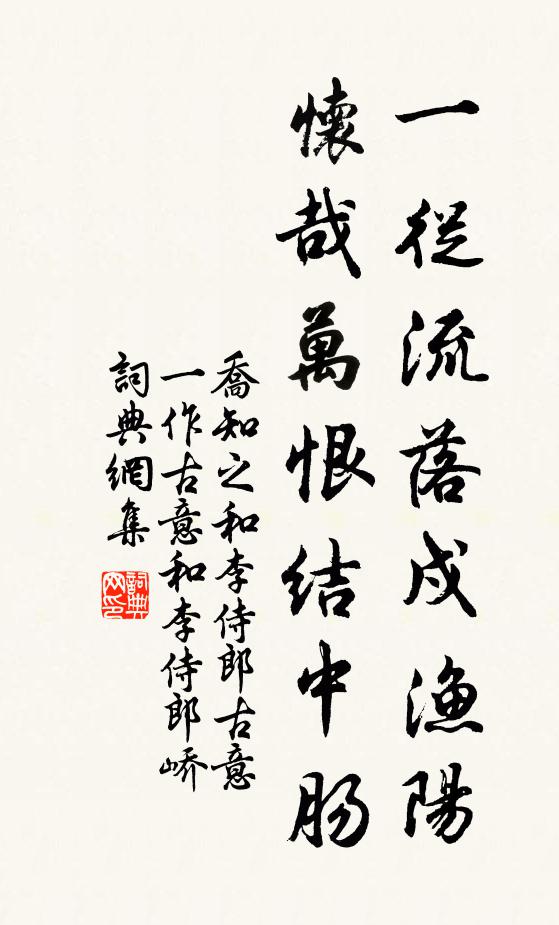 一從流落戍漁陽
懷哉萬恨結中肠
喬知之和李侍郎古意
一作古意和李侍郎嶠
詞典網集
詞典網印